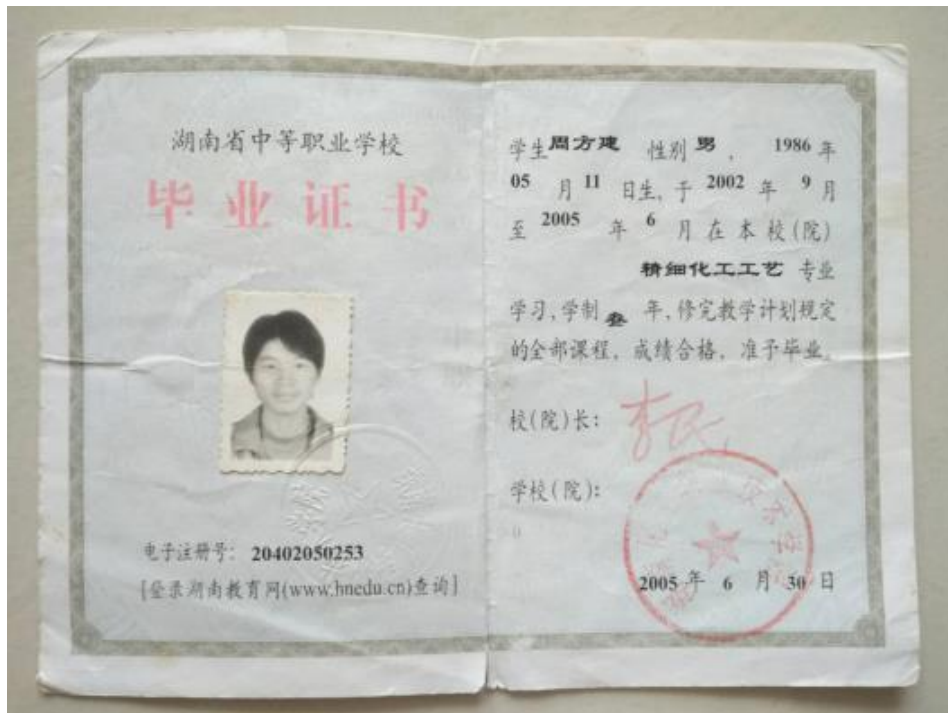 湖南省中等职业学校
毕业证书
电子注册号： 20402050253
[登录湖南教育网(www.hnedu.cn)查询]
学生周方建 性别 男 ， 1986 年
05 月 11 日生，于 2002 年 9 月
至 2005 年 6 月 在 本 校(院)
精细化工工艺 专业
学习，学制 叁 年，修完教学计划规定
的全部课程，成绩合格，准予毕业。
校(院)长：
学校(院)：
2005 年 6 月 30 日